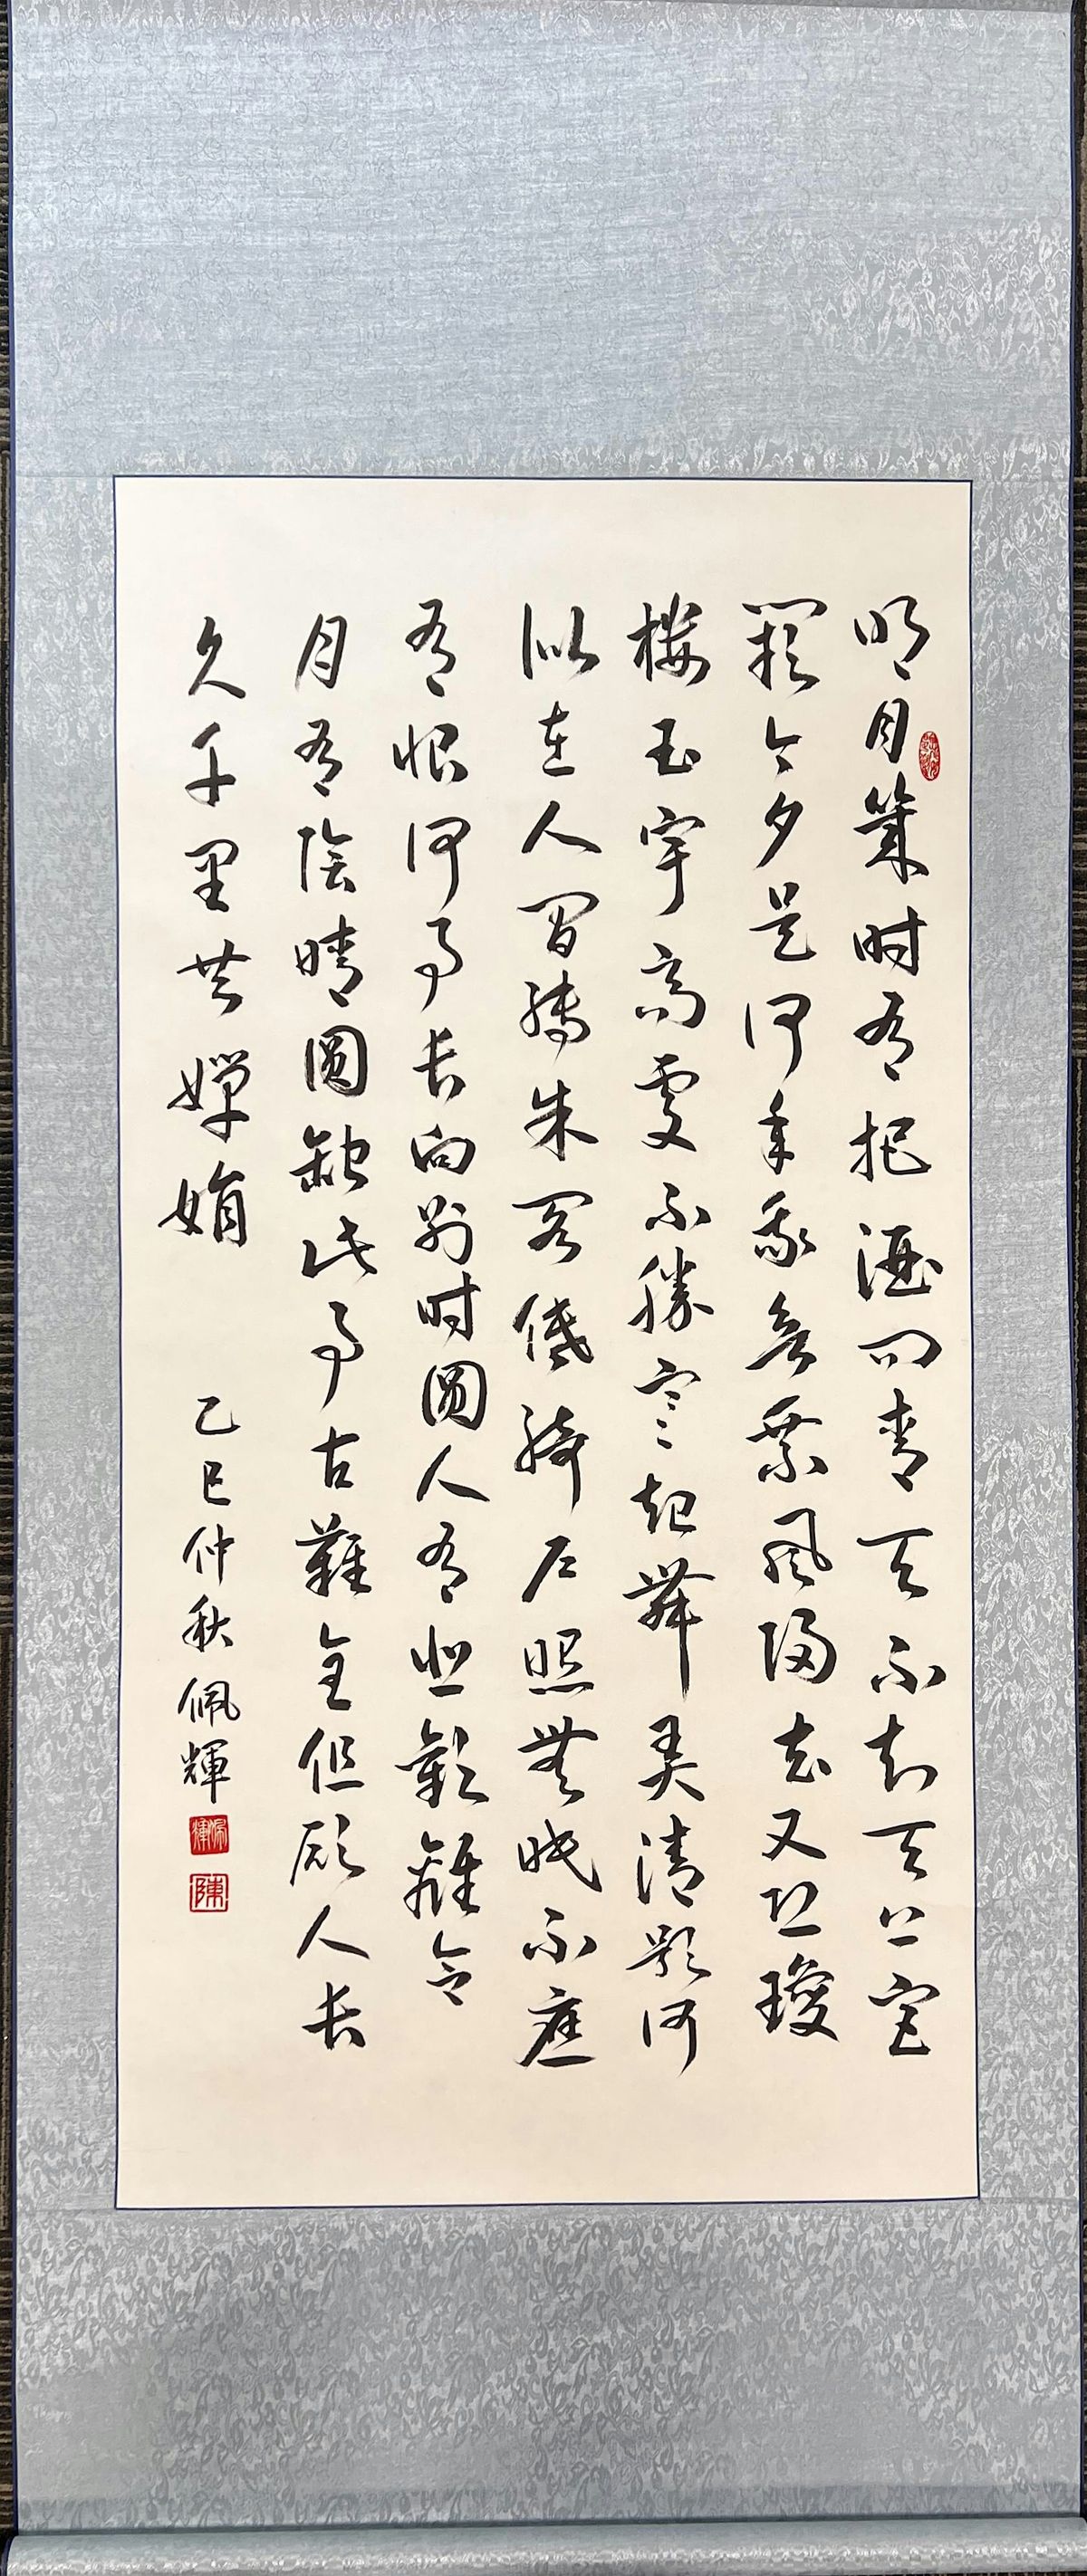 明月幾時有把酒問青天不知天上宮
闕今夕是何年我欲乘風歸去又恐瓊
樓玉宇高處不勝寒起舞弄清影何
似在人間轉朱閣低綺戶照無眠不應
有恨何事長向別時圓人有悲歡離合
月有陰晴圓缺此事古難全但願人長
久千里共嬋娟
乙巳仲秋佩輝
佩輝
陳